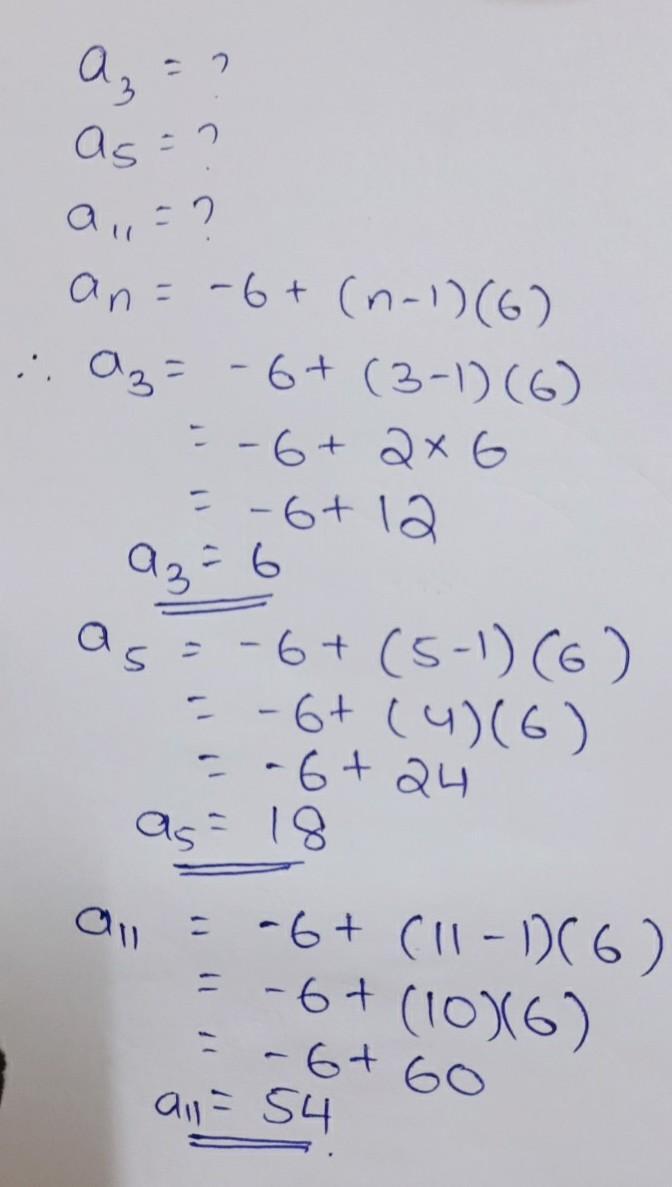 a₃ = ?
a₅ = ?
a₁₁ = ?
aₙ = -6 + (n-1)(6)
∴ a₃ = -6 + (3-1)(6)
= -6 + 2 × 6
= -6 + 12
a₃ = 6
a₅ = -6 + (5-1)(6)
= -6 + (4)(6)
= -6 + 24
a₅ = 18
a₁₁ = -6 + (11-1)(6)
= -6 + (10)(6)
= -6 + 60
a₁₁ = 54.